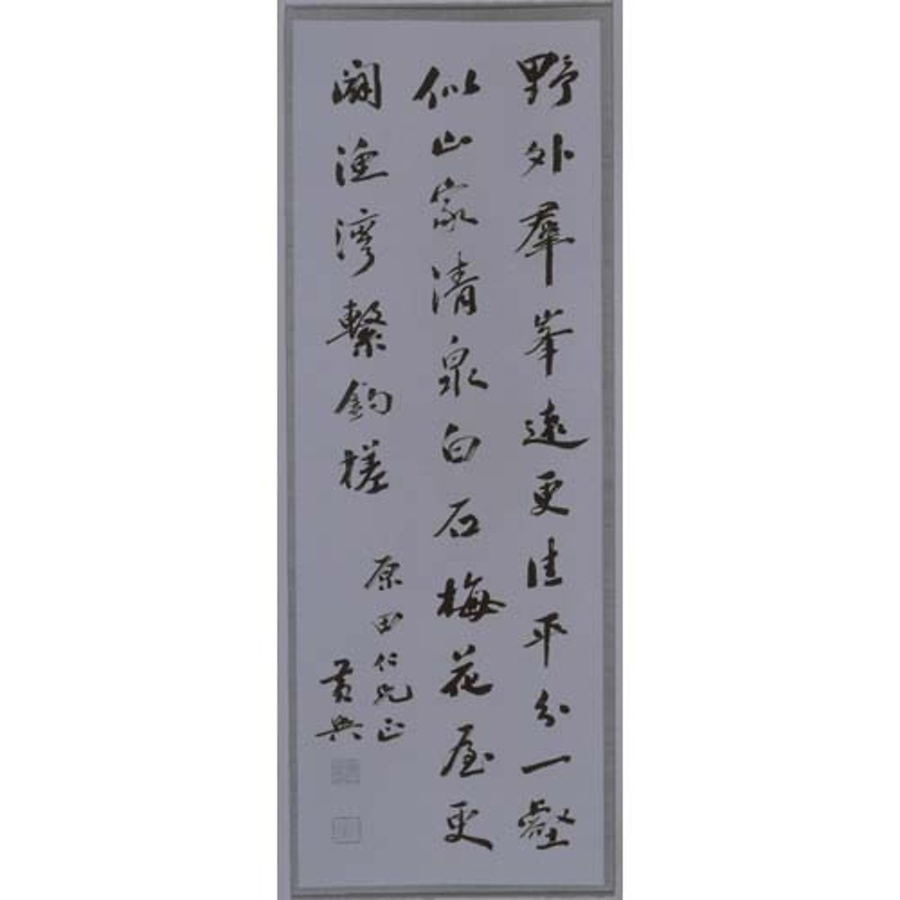 野外羣峯遠更佳平分一壑
似山家清泉白石梅花屋更
闢漁灣繫釣槎
原田仁兄正
黃興